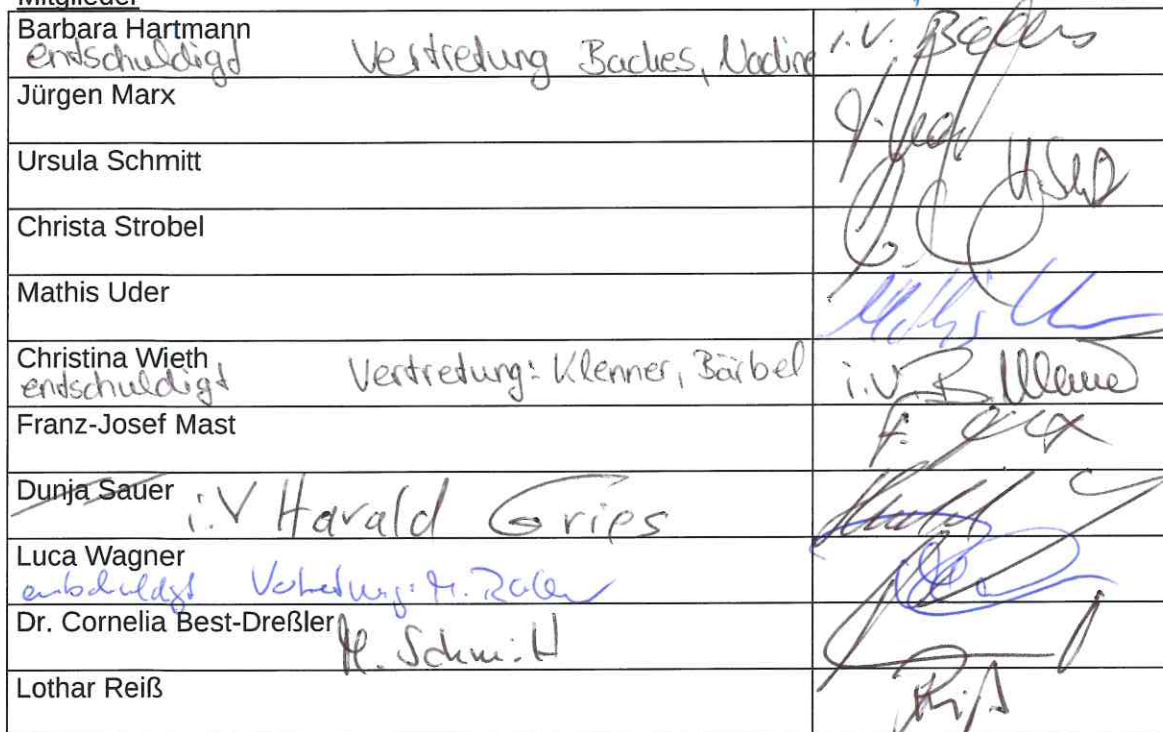 Mitglieder
Barbara Hartmann
entschuldigt Vertretung Backes, Nadine i.V. Backes
Jürgen Marx
Ursula Schmitt
Christa Strobel
Mathis Uder
Christina Wieth
entschuldigt Vertretung: Klenner, Bärbel i.V. B. Klenner
Franz-Josef Mast
Dunja Sauer i.V Harald Gries
Luca Wagner
entschuldigt Vertretung: M.
Dr. Cornelia Best-Dreßler M. Schmitt
Lothar Reiß Reiß